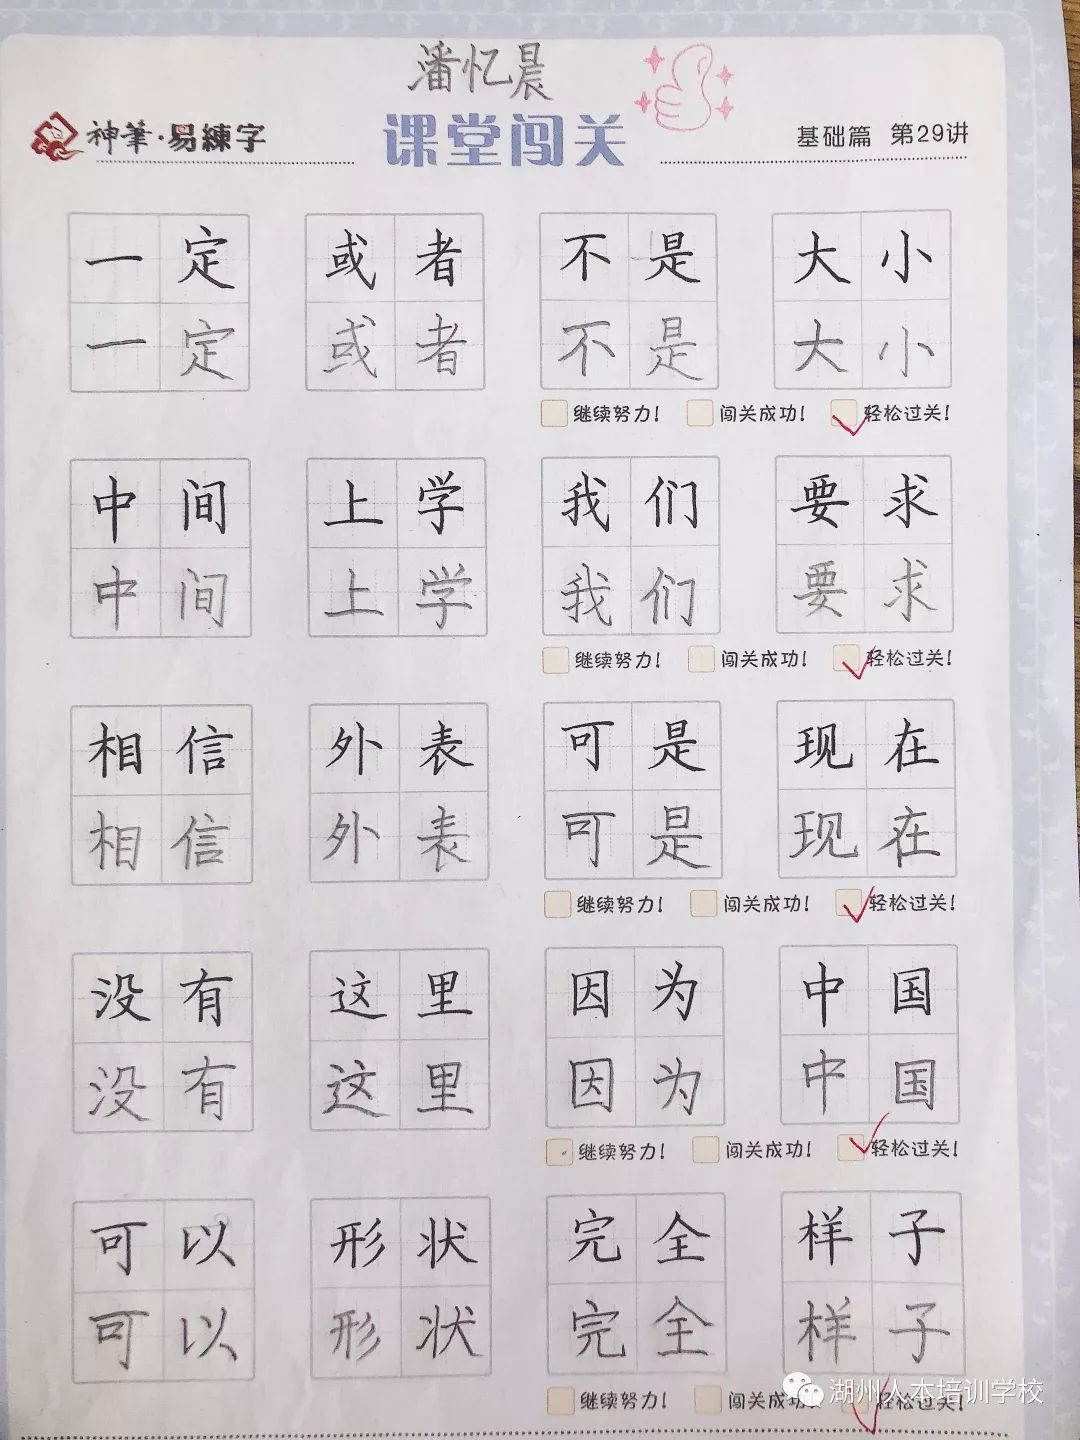 潘忆晨
神筆·易練字 课堂闯关 基础篇 第29讲
一定 或者 不是 大小
一定 或者 不是 大小
继续努力! 闯关成功! 轻松过关!
中间 上学 我们 要求
中间 上学 我们 要求
继续努力! 闯关成功! 轻松过关!
相信 外表 可是 现在
相信 外表 可是 现在
继续努力! 闯关成功! 轻松过关!
没有 这里 因为 中国
没有 这里 因为 中国
继续努力! 闯关成功! 轻松过关!
可以 形状 完全 样子
可以 形状 完全 样子
继续努力! 闯关成功! 轻松过关!
湖州人本培训学校